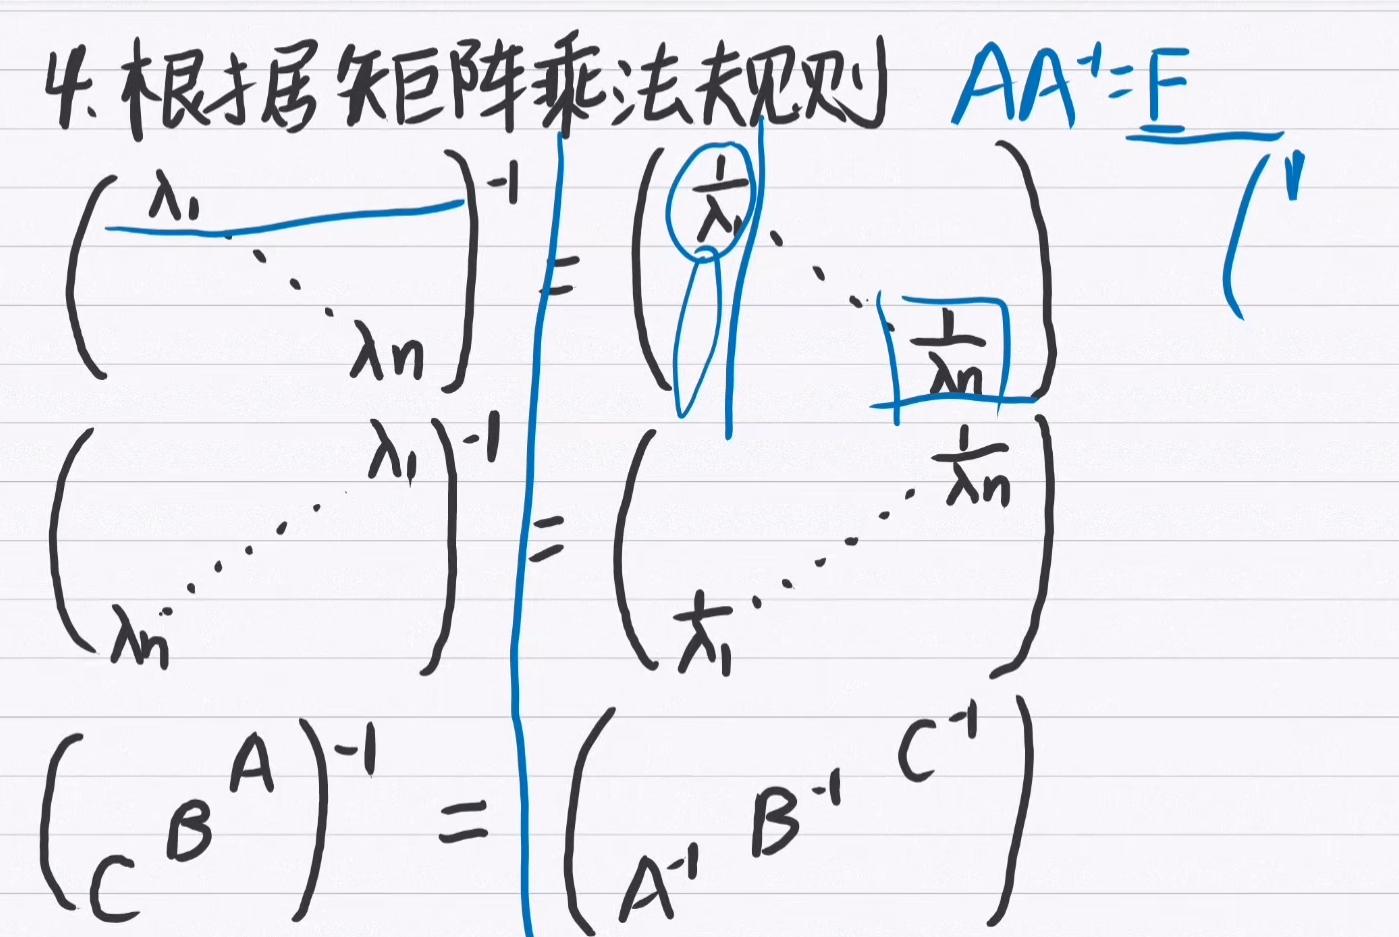 4.根据矩阵乘法规则 AA⁻¹=E
(λ₁ ⋱ λn)⁻¹ = (1/λ₁ ⋱ 1/λn) (1
(λ₁ ⋰ λn)⁻¹ = (1/λn ⋰ 1/λ₁)
(A B C)⁻¹ = (C⁻¹ B⁻¹ A⁻¹)